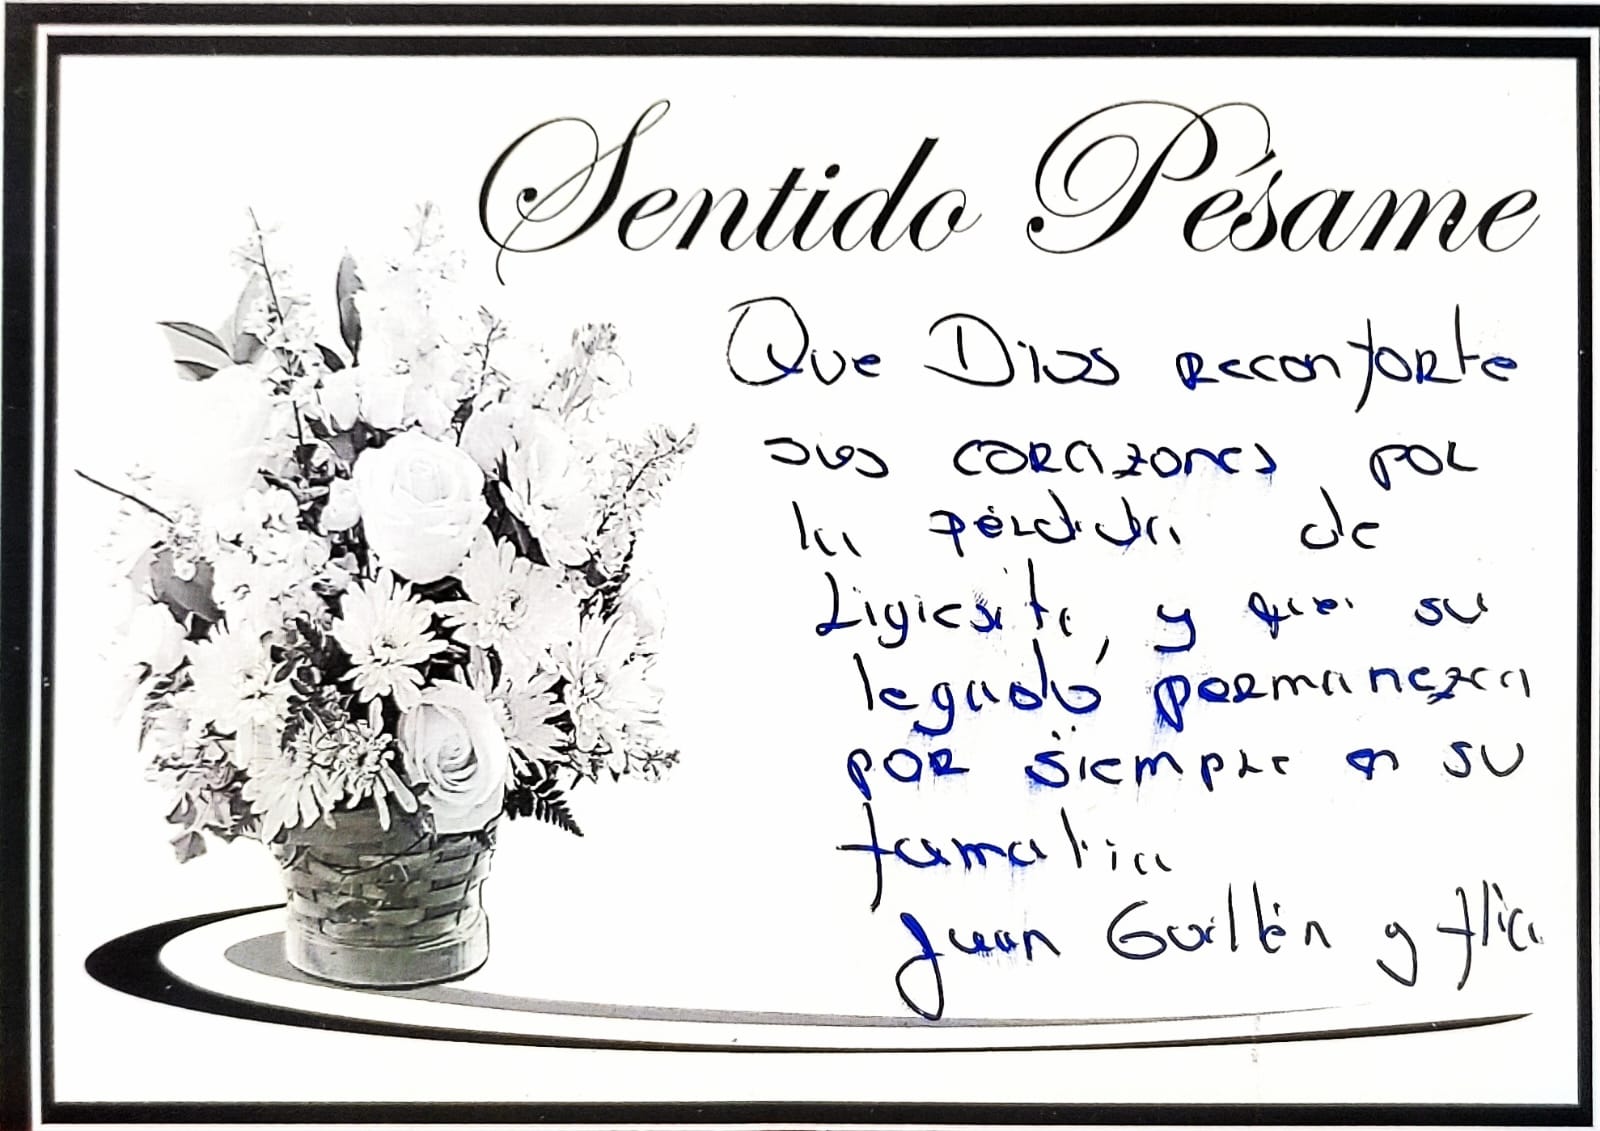 Sentido Pésame
Que Dios reconforte
sus corazones por
la pérdida de
Ligiesita, y que su
legado permanezca
por siempre en su
familia
Juan Guillén y flia